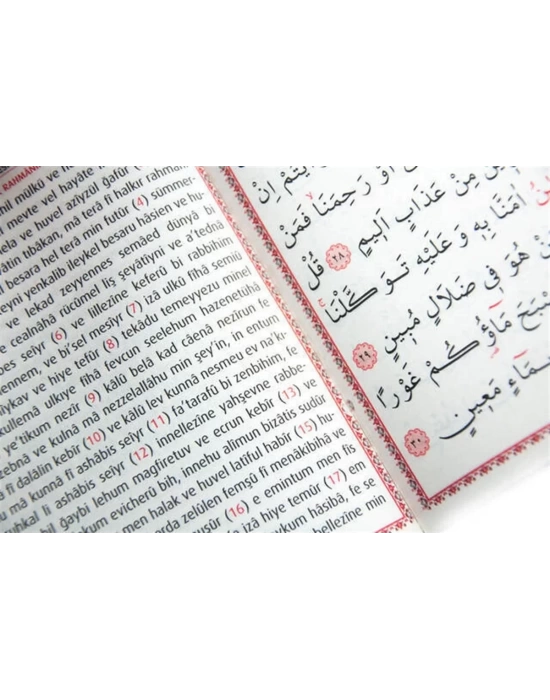 RAHMANİ
mil mülkü ve h
l meyte vel hayate
ela ve huvel azîyzül gafür (
vâtin tıbâkan, mâ terâ fî halkır rahmân
l besara hel terâ min futûr (4) sümmer-
teyni yenkalib ileykel besaru hâsien ve hu-
ve lekad zeyyennes semâed dünyâ bi
e cealnâhâ rücûmel liş şeyâtiyni ve a'tednâ
bes seîyr (6) ve lillezîne keferû bi rabbihim
nennem, ve bi'sel mesîyr (7) izâ ulkû fîhâ semiû
îykav ve hiye tefûr (8) tekâdu temeyyezu minel
kullemâ ulkıye fîhâ fevcun seelehum hazenetühâ
e'tikum nezîr (9) kâlû belâ kad câenâ nezîrun fe
zebnâ ve kulnâ mâ nezzelallâhu min şey'in, in entum
â fî dalâlin kebîr (10) ve kâlû lev kunnâ nesmeu ev na'k-
u mâ kunnâ fî ashâbis seîyr (11) fa'tarafû bi zenbihim, fe
uhkal li ashâbis seîyr (12) innellezîne yahşevne rabbe-
bil ğaybi lehum mağfiretuv ve ecrun kebîr (13) ve
kum evicherû bih, innehu alîmun bizâtis sudûr
men halak ve huvel latîful habîr (15) hu-
arda zelûlen femşû fî menâkibihâ ve
uşûr (16) e emintum men fis
e izâ hiye temûr (17) em
eykum hâsibâ, fe se
bellezîne min
ايْتُمْ اِنْ
اَوْ رَحِمَنَا فَمَنْ
ينَ مِنْ عَذَابٍ اَلِيمٍ ٢٨ قُلْ
اٰمَنَّا بِهٖ وَ عَلَيْهِ تَوَكَّلْنَا
نْ هُوَ فِي ضَلَالٍ مُبِينٍ ٢٩
صْبَحَ مَاؤُكُمْ غَوْرًا
سْمَاءٍ مَعِينٍ ٣٠